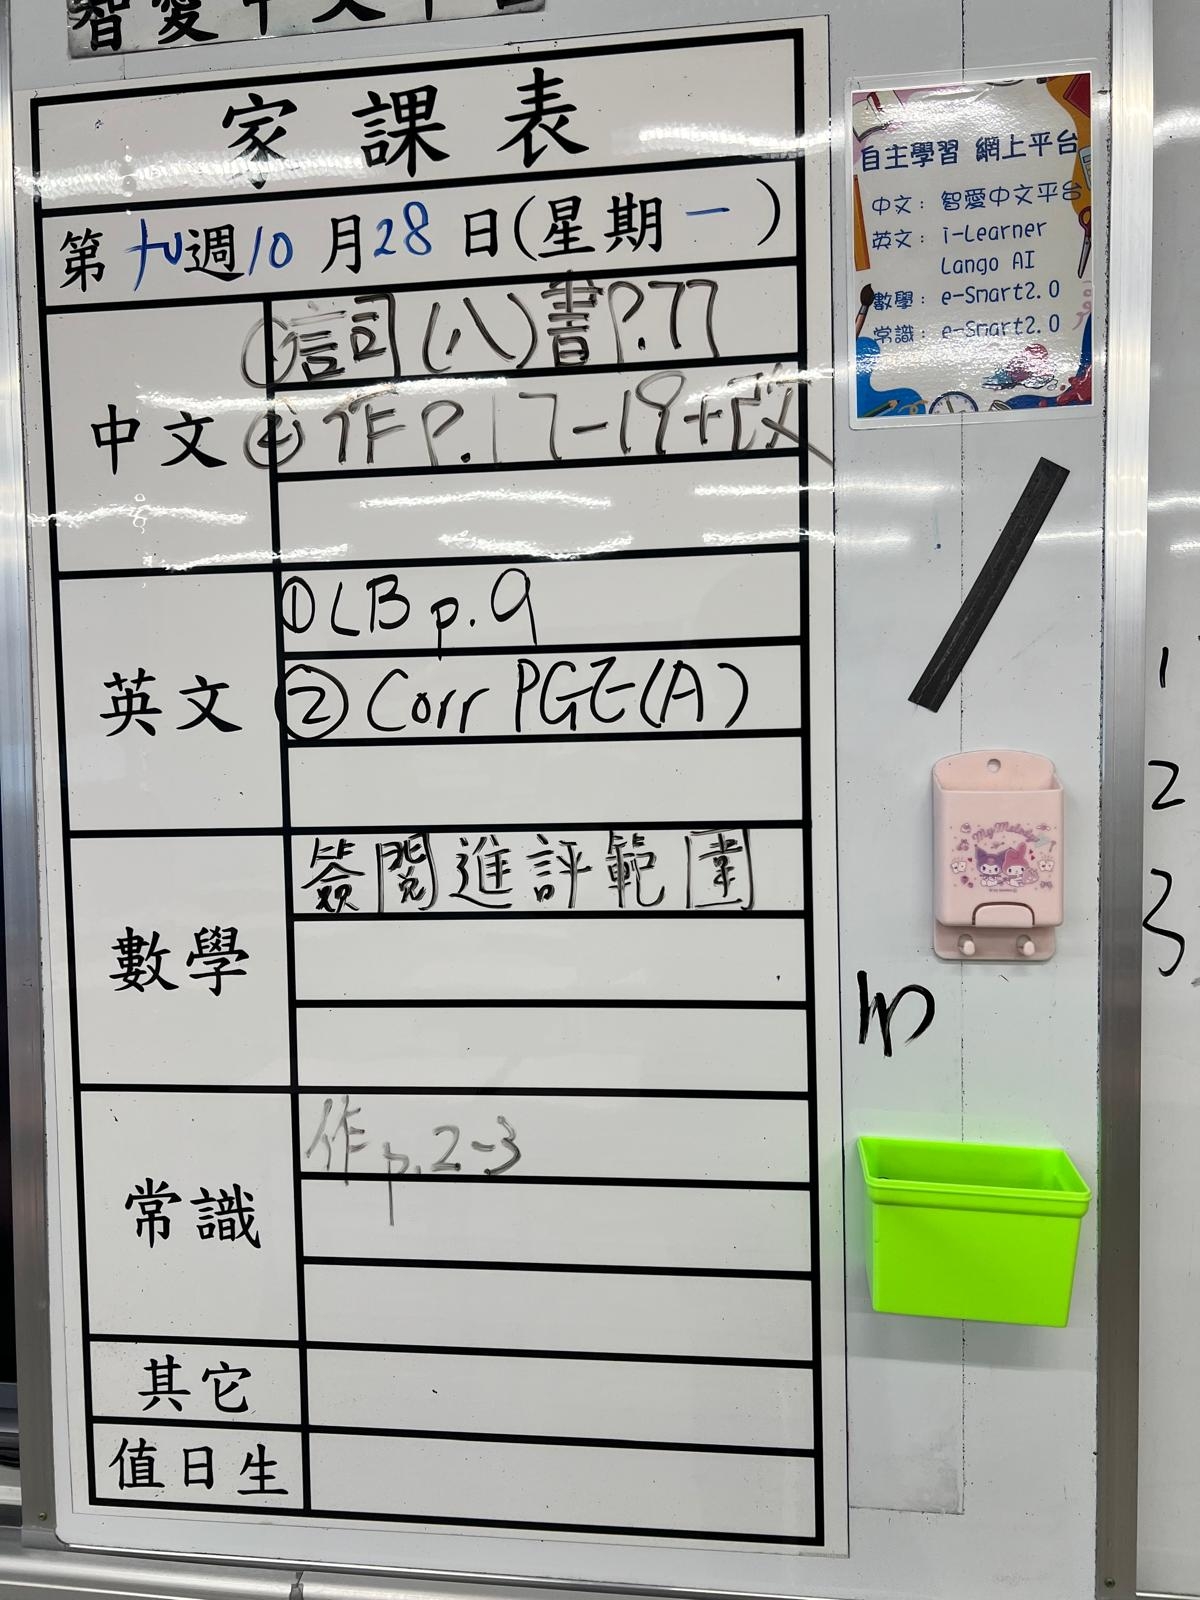 智愛中文平台
家課表
第九週10月28日(星期一)
中文
①詞(八)書P.77
②作P.17-19+改
英文
①LB p.9
②Corr PGE(A)
數學
簽閱進評範圍
常識
作p.2-3
其它
值日生
自主學習 網上平台
中文：智愛中文平台
英文：i-Learner
Lango AI
數學：e-Smart2.0
常識：e-Smart2.0
My Melody
1
2
3